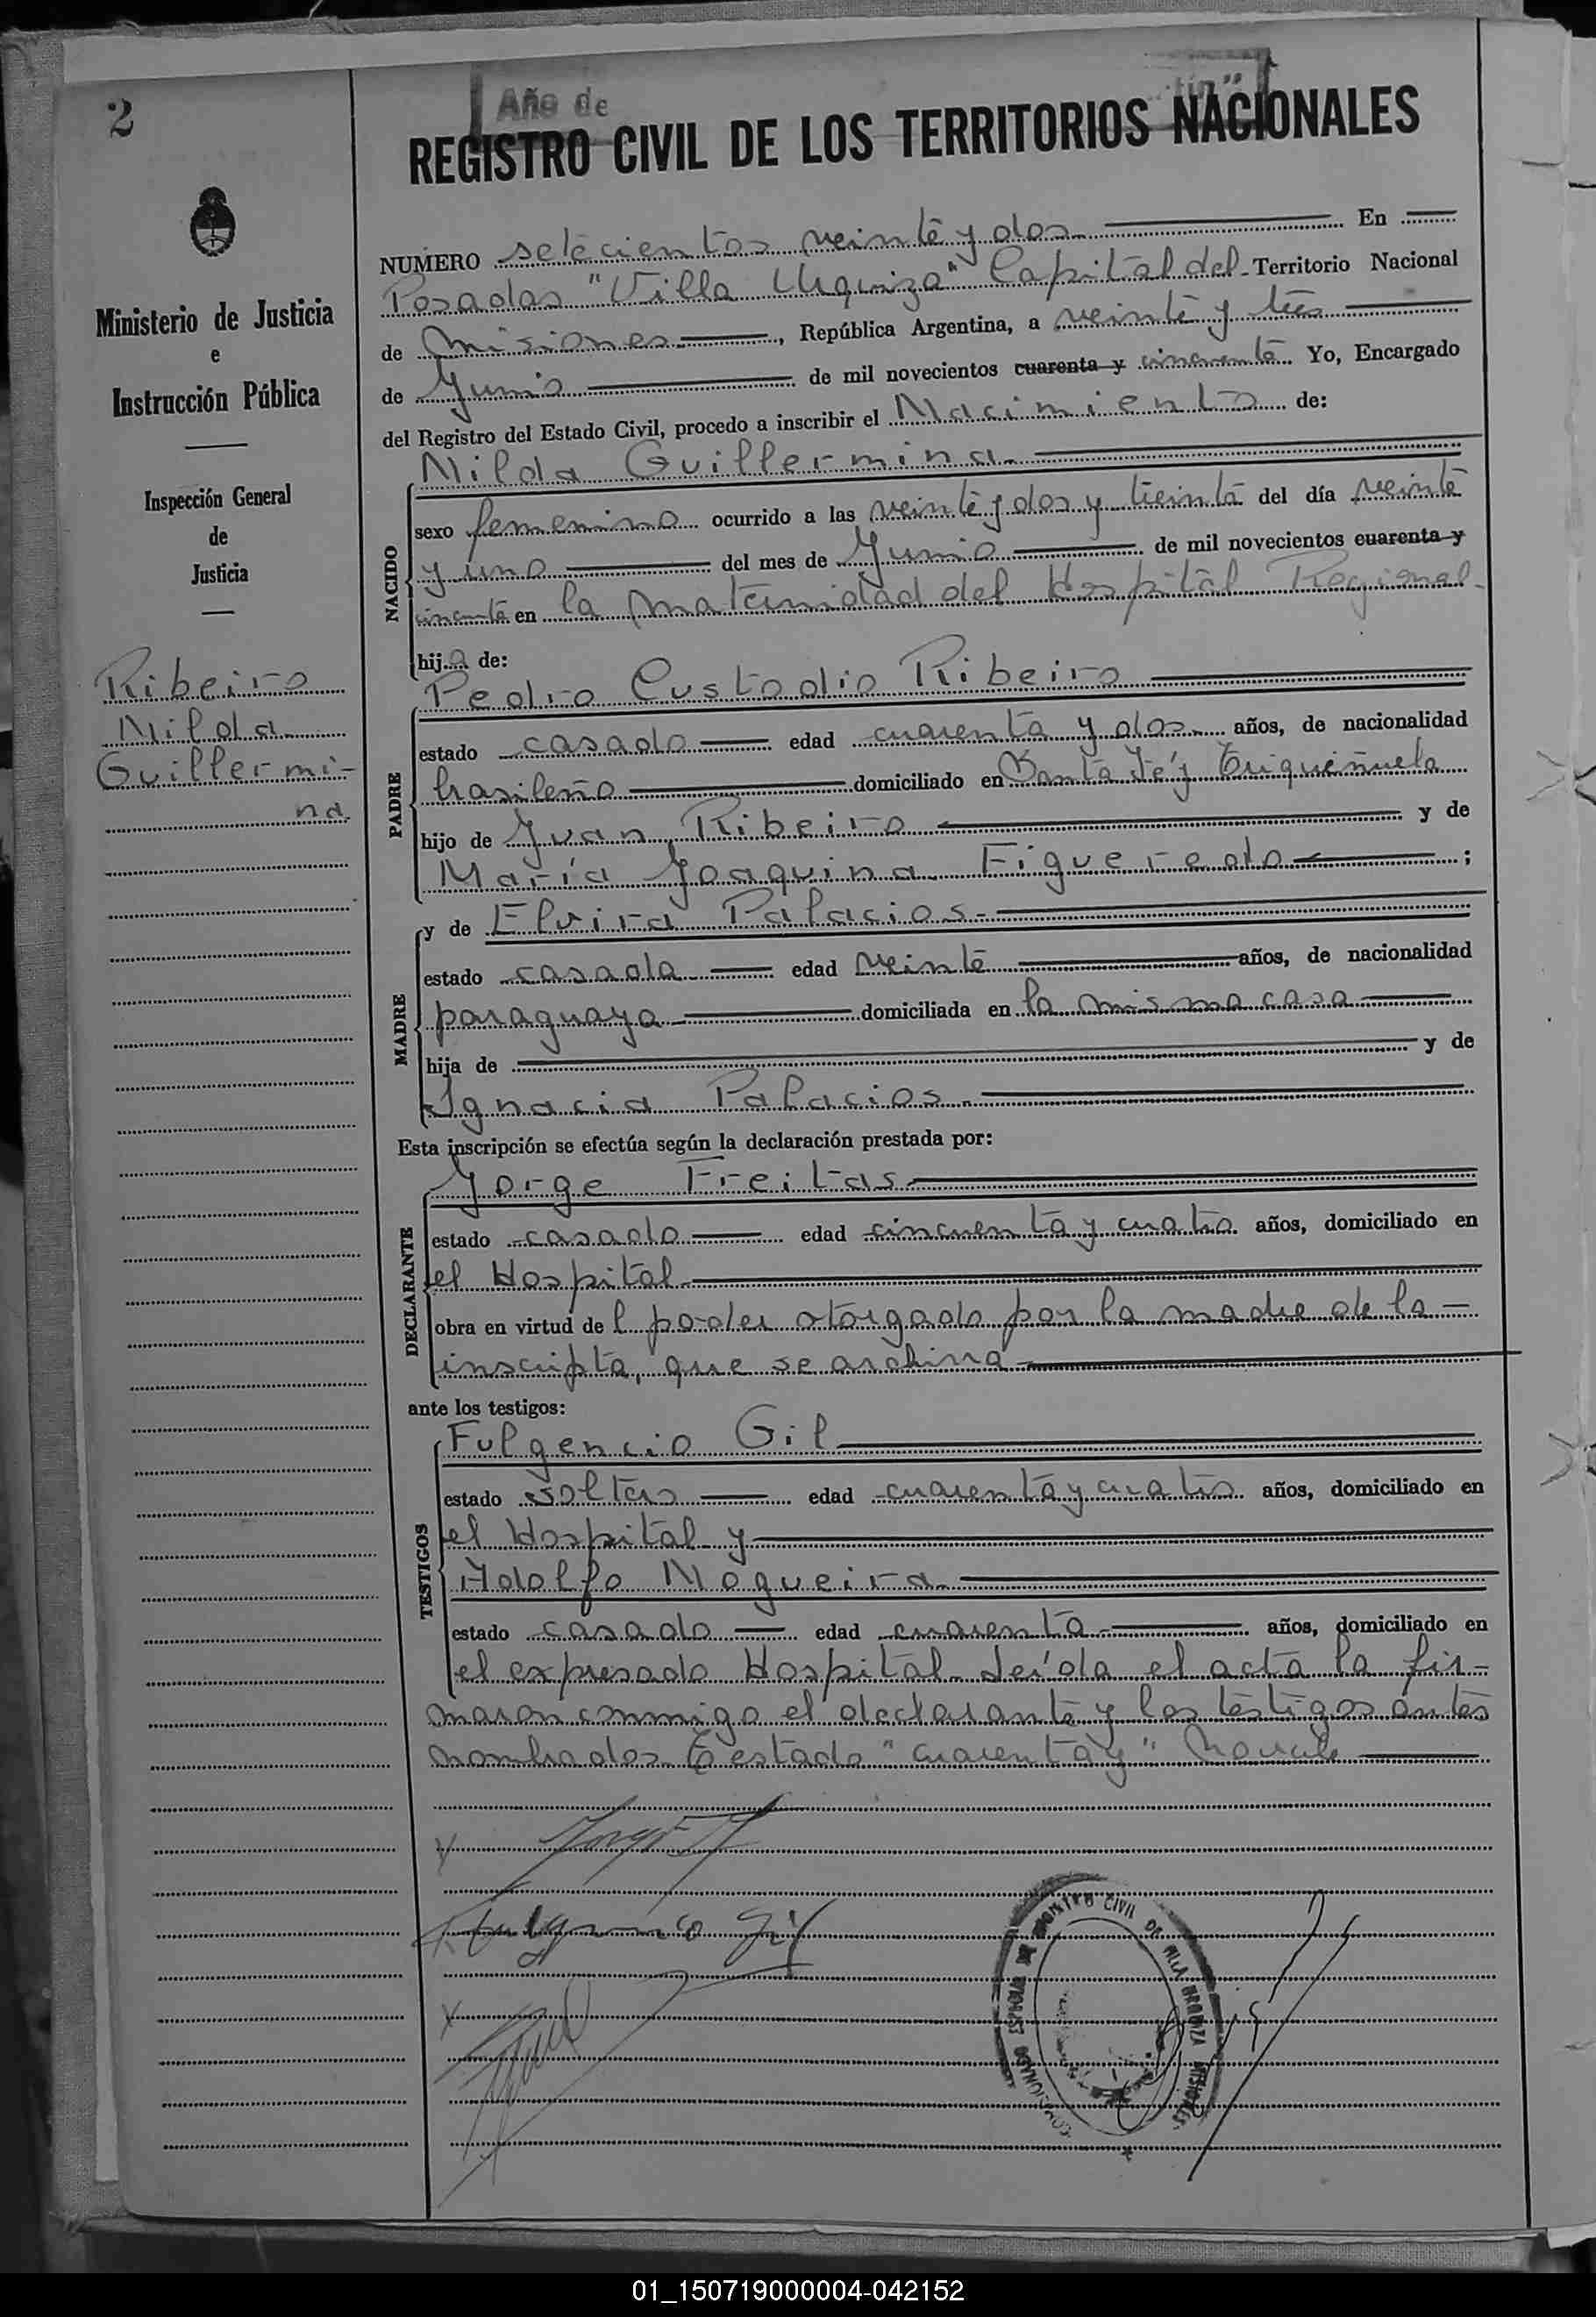 2
Año de
REGISTRO CIVIL DE LOS TERRITORIOS NACIONALES
Ministerio de Justicia
e
Instrucción Pública
Inspección General
de
Justicia
Ribeiro
Nilda
Guillermi-
na
NUMERO setecientos veinte y dos En
Posadas "Villa Urquiza" Capital del Territorio Nacional
de Misiones, República Argentina, a veinte y tres
de Junio de mil novecientos cuarenta y cincuenta Yo, Encargado
del Registro del Estado Civil, procedo a inscribir el Nacimiento de:
NACIDO
Nilda Guillermina
sexo femenino ocurrido a las veinte y dos y treinta del día veinte
y uno del mes de Junio de mil novecientos cuarenta y
cincuenta en la maternidad del Hospital Regional
hija de:
PADRE
Pedro Custodio Ribeiro
estado casado edad cuarenta y dos años, de nacionalidad
brasileño domiciliado en Santa Fé y
hijo de Juan Ribeiro y de
María Joaquina Figueredo ;
MADRE
y de Elvira Palacios
estado casada edad veinte años, de nacionalidad
paraguaya domiciliada en la misma casa
hija de y de
Ignacia Palacios
Esta inscripción se efectúa según la declaración prestada por:
DECLARANTE
Jorge Freitas
estado casado edad cincuenta y cuatro años, domiciliado en
el Hospital
obra en virtud de l poder otorgado por la madre de la
inscripta, que se archiva
ante los testigos:
TESTIGOS
Fulgencio Gil
estado soltero edad cuarenta y cuatro años, domiciliado en
el Hospital y
Adolfo Nogueira
estado casado edad cuarenta años, domiciliado en
el expresado Hospital. Leída el acta la fir-
maron conmigo el declarante y los testigos antes
nombrados. Testado "cuarenta y" No vale
Fulgencio Gil
REGISTRO CIVIL DE VILLA URQUIZA MISIONES
01_150719000004-042152